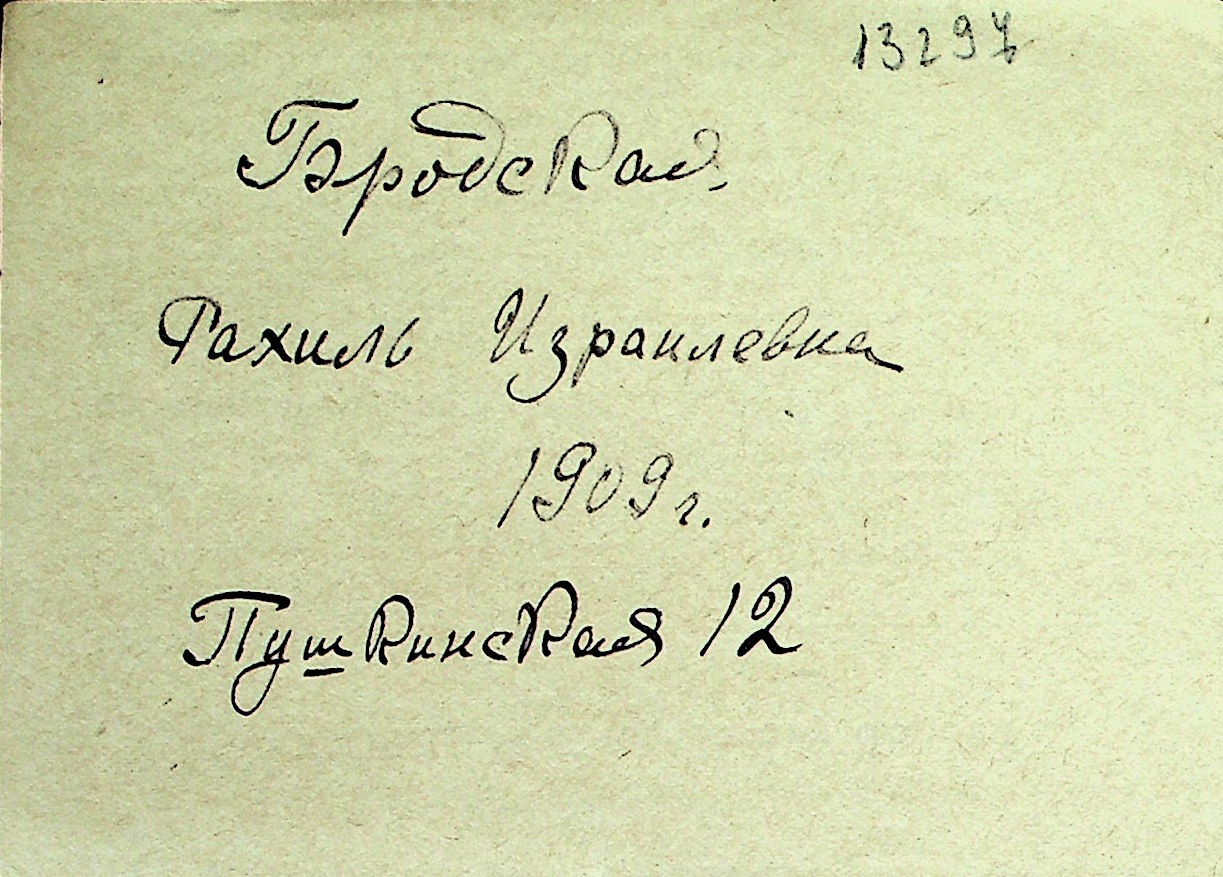 13297
Бродская
Рахиль Израилевна
1909 г.
Пушкинская 12